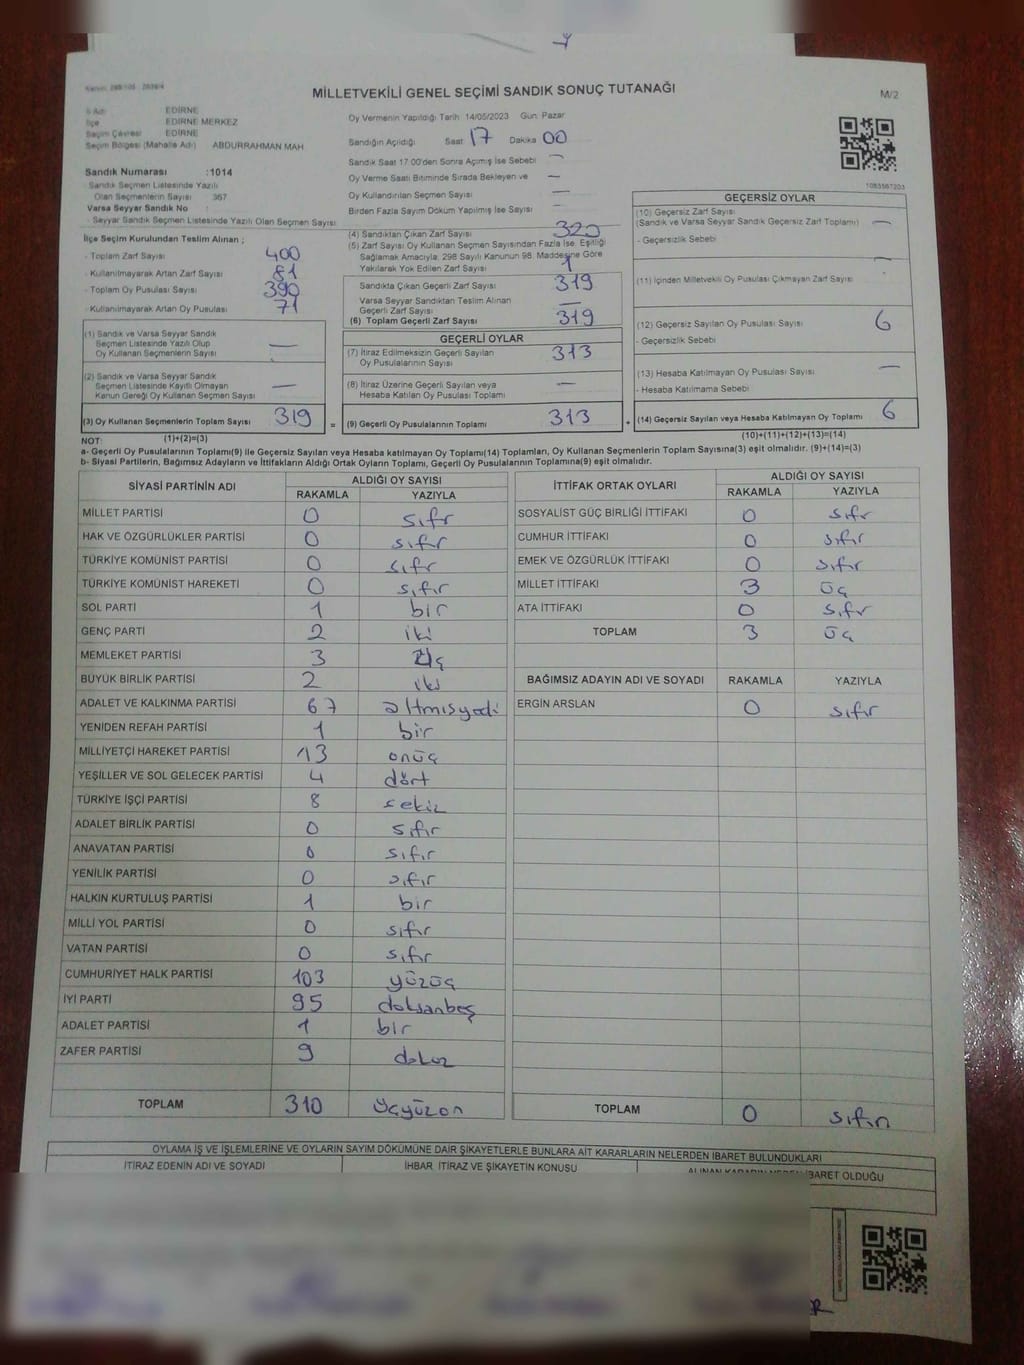 MİLLETVEKİLİ GENEL SEÇİMİ SANDIK SONUÇ TUTANAĞI
M/2
EDİRNE
İlçe EDİRNE MERKEZ
Seçim Çevresi EDİRNE
Seçim Bölgesi (Mahalle Adı) ABDURRAHMAN MAH
Sandık Numarası :1014
Sandık Seçmen Listesinde Yazılı
Olan Seçmenlerin Sayısı 367
Varsa Seyyar Sandık No
- Seyyar Sandık Seçmen Listesinde Yazılı Olan Seçmen Sayısı
Oy Vermenin Yapıldığı Tarih 14/05/2023 Gün: Pazar
Sandığın Açıldığı Saat 17 Dakika 00
Sandık Saat 17:00'den Sonra Açılmış İse Sebebi —
Oy Verme Saati Bitiminde Sırada Bekleyen ve —
Oy Kullandırılan Seçmen Sayısı —
Birden Fazla Sayım Döküm Yapılmış İse Sayısı —
1083567203
İlçe Seçim Kurulundan Teslim Alınan ;
- Toplam Zarf Sayısı 400
- Kullanılmayarak Artan Zarf Sayısı 81
- Toplam Oy Pusulası Sayısı 390
- Kullanılmayarak Artan Oy Pusulası 71
(1) Sandık ve Varsa Seyyar Sandık
Seçmen Listesinde Yazılı Olup
Oy Kullanan Seçmenlerin Sayısı —
(2) Sandık ve Varsa Seyyar Sandık
Seçmen Listesinde Kayıtlı Olmayan
Kanun Gereği Oy Kullanan Seçmen Sayısı —
(3) Oy Kullanan Seçmenlerin Toplam Sayısı 319
(1)+(2)=(3)
(4) Sandıktan Çıkan Zarf Sayısı 320
(5) Zarf Sayısı Oy Kullanan Seçmen Sayısından Fazla İse, Eşitliği
Sağlamak Amacıyla, 298 Sayılı Kanunun 98. Maddesine Göre
Yakılarak Yok Edilen Zarf Sayısı 1
Sandıkta Çıkan Geçerli Zarf Sayısı 319
Varsa Seyyar Sandıktan Teslim Alınan
Geçerli Zarf Sayısı —
(6) Toplam Geçerli Zarf Sayısı 319
GEÇERLİ OYLAR
(7) İtiraz Edilmeksizin Geçerli Sayılan
Oy Pusulalarının Sayısı 313
(8) İtiraz Üzerine Geçerli Sayılan veya
Hesaba Katılan Oy Pusulası Toplamı —
= (9) Geçerli Oy Pusulalarının Toplamı 313 +
GEÇERSİZ OYLAR
(10) Geçersiz Zarf Sayısı
(Sandık ve Varsa Seyyar Sandık Geçersiz Zarf Toplamı) —
- Geçersizlik Sebebi
(11) İçinden Milletvekili Oy Pusulası Çıkmayan Zarf Sayısı —
(12) Geçersiz Sayılan Oy Pusulası Sayısı 6
- Geçersizlik Sebebi
(13) Hesaba Katılmayan Oy Pusulası Sayısı —
- Hesaba Katılmama Sebebi
(14) Geçersiz Sayılan veya Hesaba Katılmayan Oy Toplamı 6
(10)+(11)+(12)+(13)=(14)
NOT:
a- Geçerli Oy Pusulalarının Toplamı(9) ile Geçersiz Sayılan veya Hesaba Katılmayan Oy Toplamı(14) Toplamları, Oy Kullanan Seçmenlerin Toplam Sayısına(3) eşit olmalıdır. (9)+(14)=(3)
b- Siyasi Partilerin, Bağımsız Adayların ve İttifakların Aldığı Ortak Oyların Toplamı, Geçerli Oy Pusulalarının Toplamına(9) eşit olmalıdır.
SİYASİ PARTİNİN ADI ALDIĞI OY SAYISI
RAKAMLA YAZIYLA
MİLLET PARTİSİ 0 sıfr
HAK VE ÖZGÜRLÜKLER PARTİSİ 0 sıfır
TÜRKİYE KOMÜNİST PARTİSİ 0 sıfr
TÜRKİYE KOMÜNİST HAREKETİ 0 sıfır
SOL PARTİ 1 bir
GENÇ PARTİ 2 iki
MEMLEKET PARTİSİ 3 üç
BÜYÜK BİRLİK PARTİSİ 2 iki
ADALET VE KALKINMA PARTİSİ 67 altmışyedi
YENİDEN REFAH PARTİSİ 1 bir
MİLLİYETÇİ HAREKET PARTİSİ 13 onüç
YEŞİLLER VE SOL GELECEK PARTİSİ 4 dört
TÜRKİYE İŞÇİ PARTİSİ 8 sekiz
ADALET BİRLİK PARTİSİ 0 sıfır
ANAVATAN PARTİSİ 0 sıfır
YENİLİK PARTİSİ 0 sıfır
HALKIN KURTULUŞ PARTİSİ 1 bir
MİLLİ YOL PARTİSİ 0 sıfır
VATAN PARTİSİ 0 sıfır
CUMHURİYET HALK PARTİSİ 103 yüzüç
İYİ PARTİ 95 doksanbeş
ADALET PARTİSİ 1 bir
ZAFER PARTİSİ 9 dokuz
TOPLAM 310 üçyüzon
İTTİFAK ORTAK OYLARI ALDIĞI OY SAYISI
RAKAMLA YAZIYLA
SOSYALİST GÜÇ BİRLİĞİ İTTİFAKI 0 sıfr
CUMHUR İTTİFAKI 0 sıfır
EMEK VE ÖZGÜRLÜK İTTİFAKI 0 sıfır
MİLLET İTTİFAKI 3 üç
ATA İTTİFAKI 0 sıfır
TOPLAM 3 üç
BAĞIMSIZ ADAYIN ADI VE SOYADI RAKAMLA YAZIYLA
ERGİN ARSLAN 0 sıfır
TOPLAM 0 sıfır
OYLAMA İŞ VE İŞLEMLERİNE VE OYLARIN SAYIM DÖKÜMÜNE DAİR ŞİKAYETLERLE BUNLARA AİT KARARLARIN NELERDEN İBARET BULUNDUKLARI
İTİRAZ EDENİN ADI VE SOYADI İHBAR, İTİRAZ VE ŞİKAYETİN KONUSU ALINAN KARARIN NEDEN İBARET OLDUĞU